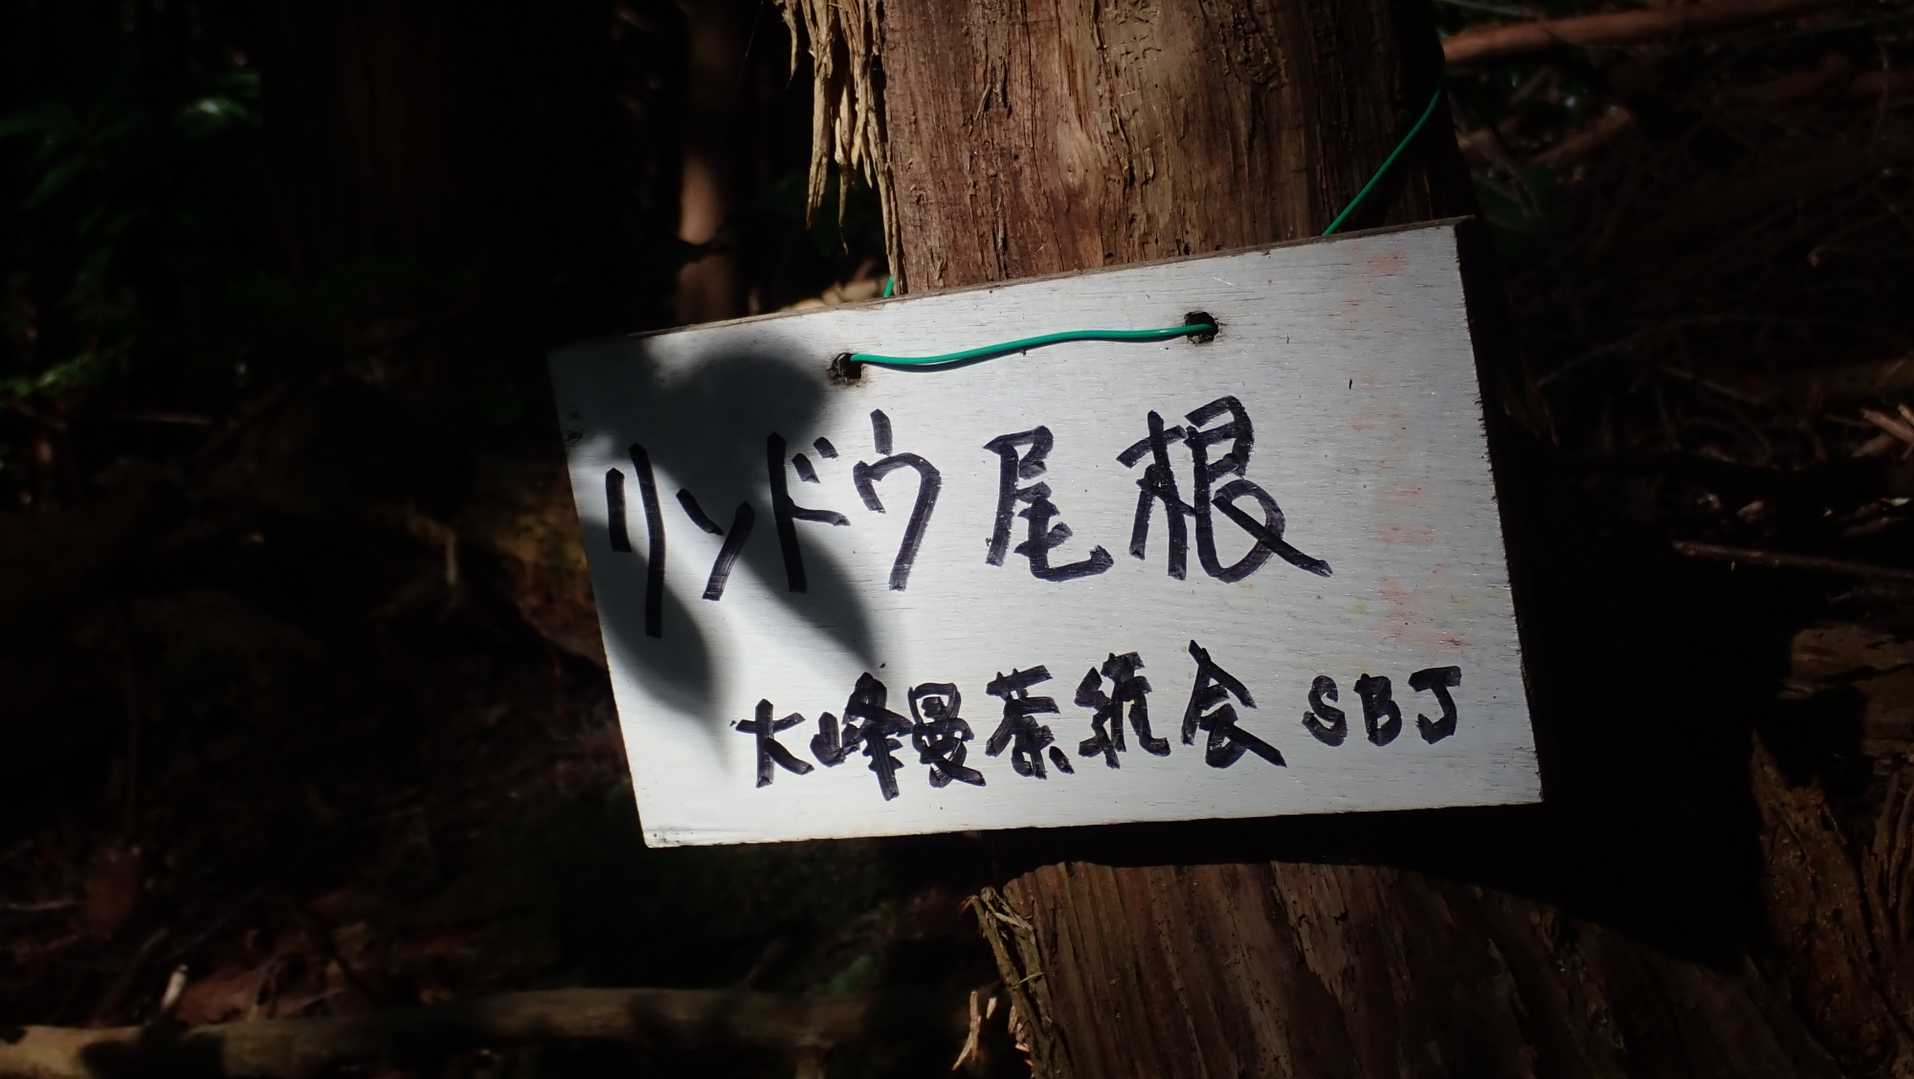 リンドウ尾根
大峰曼茶羅会 SBJ